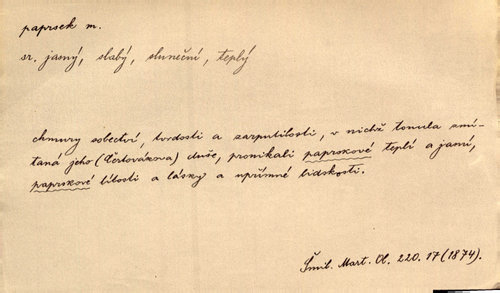 paprsek m.
sr. jasný, slabý, sluneční, teplý
chmury sobectví, tvrdosti a zarputilosti, v nichž tonula zmí-
taná jeho (Čertovákova) duše, pronikali paprskové teplí a jasní,
paprskové lítosti a lásky a upřímné lidskosti.
Šmil. Mart. Ol. 220. 17 (1874).